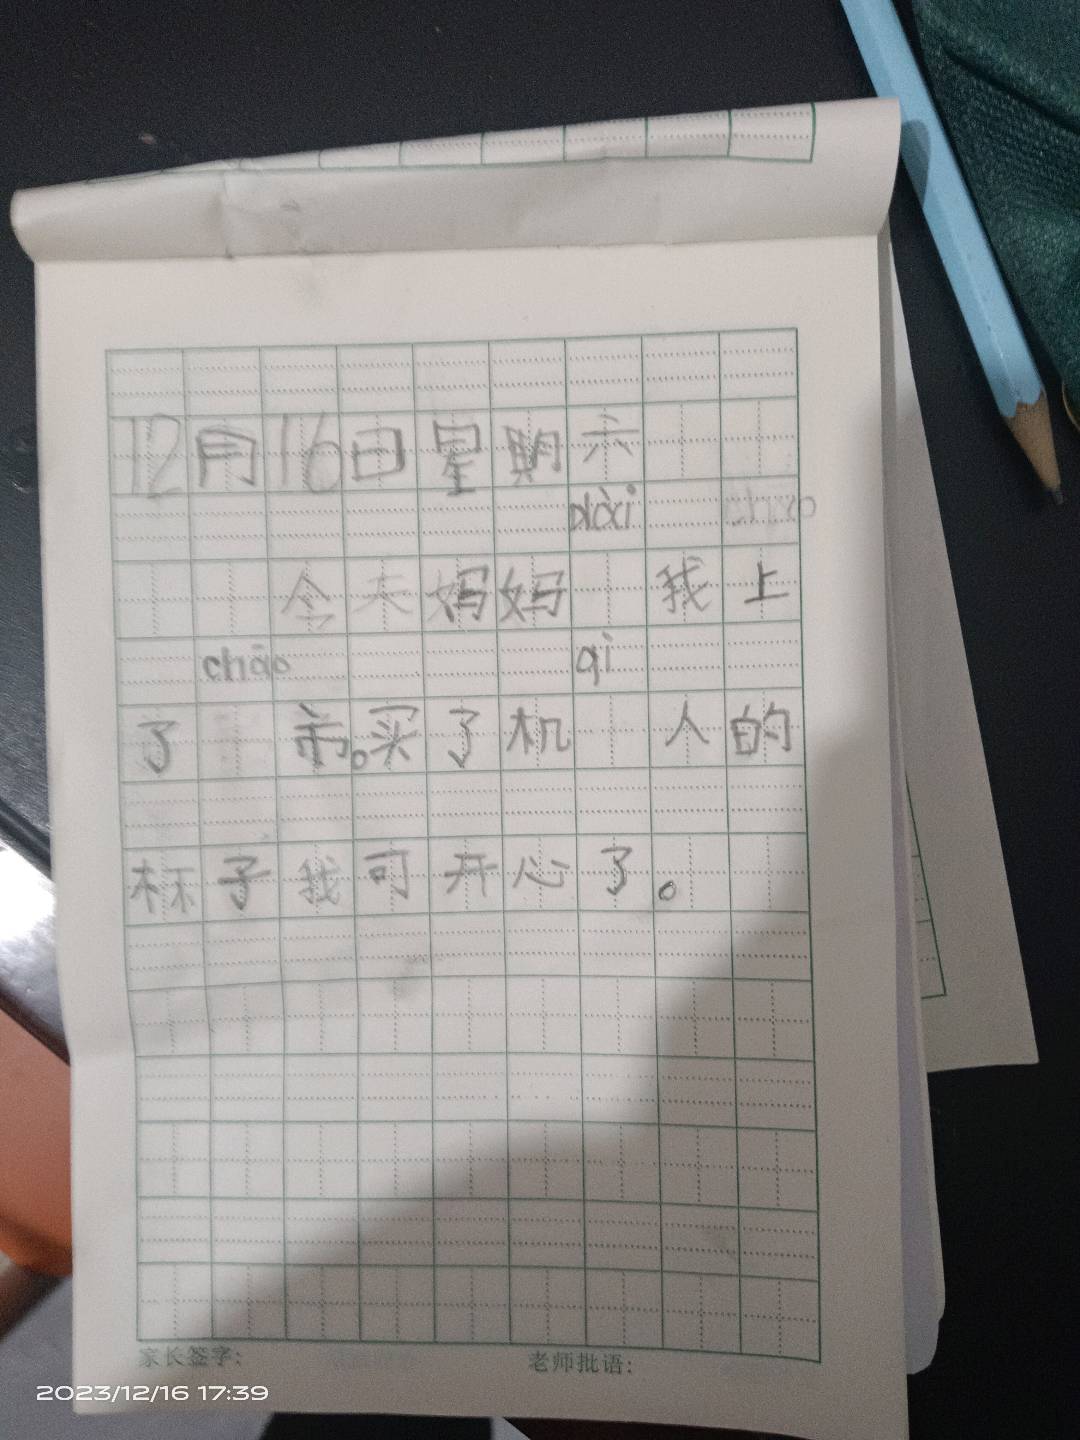 12月16日星期六
dài
今天妈妈 我上
chāo qì
了 市。买了机 人的
杯子我可开心了。
家长签字： 老师批语：
2023/12/16 17:39